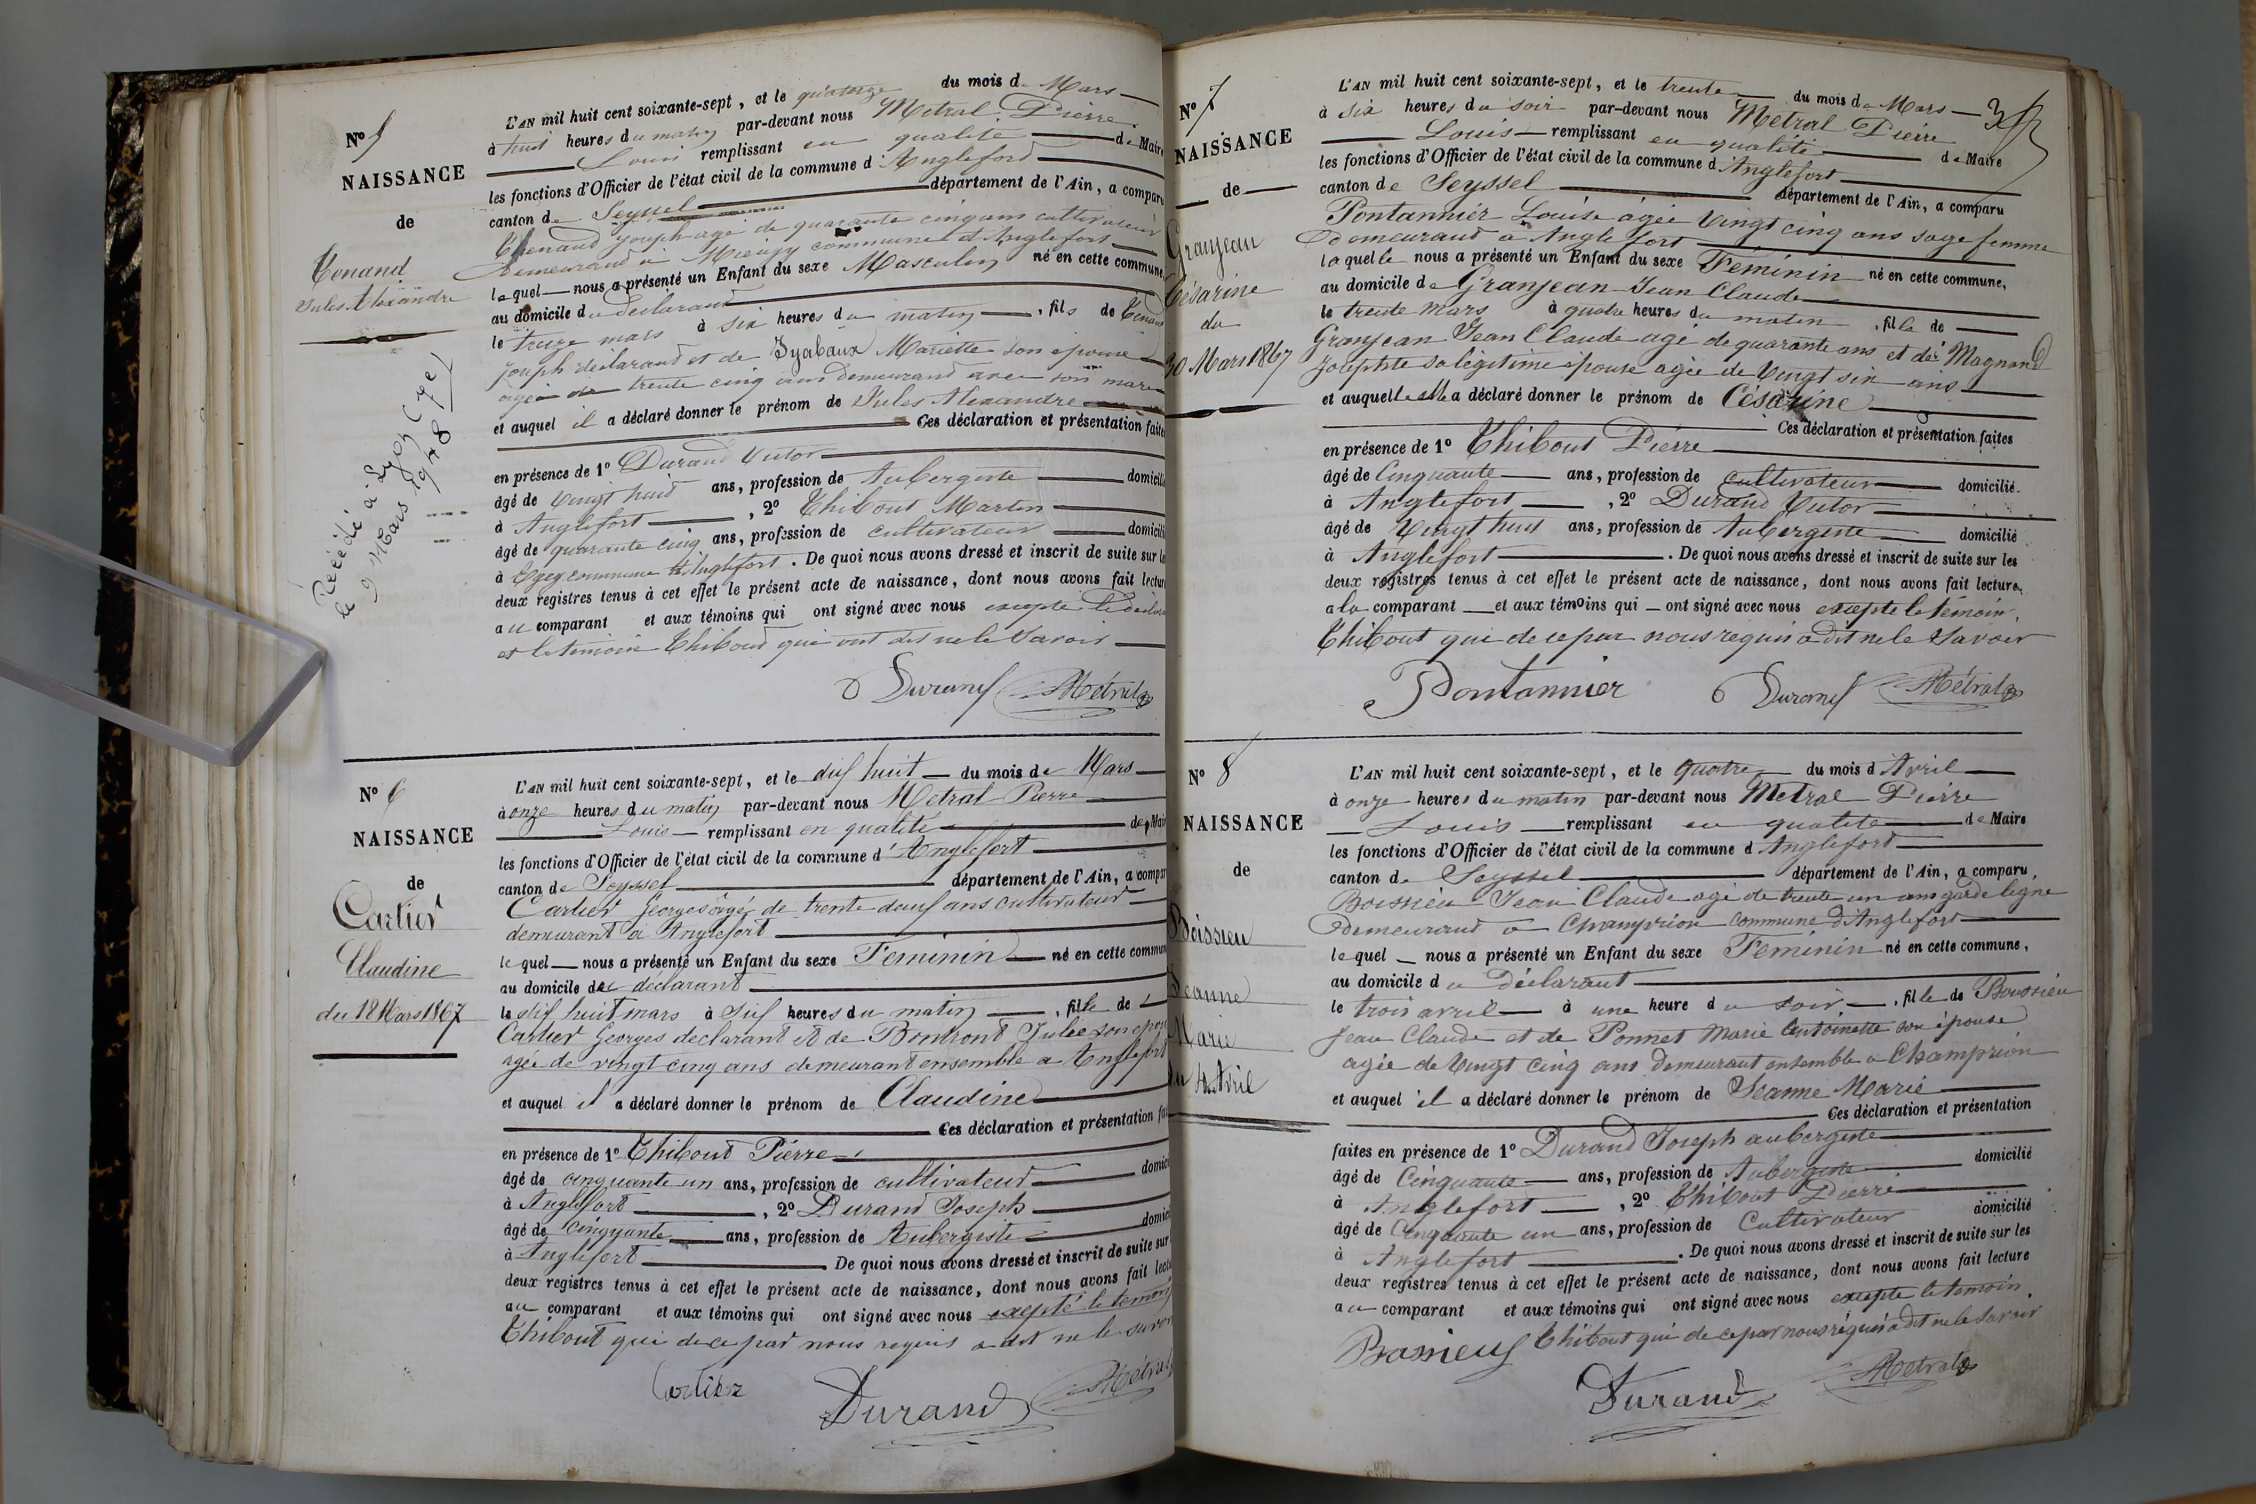 N° 5
NAISSANCE
de
Tenand
Jules Alexandre
Décédé à Lyon
le 9 Mars 1948
L'AN mil huit cent soixante-sept, et le quatorze du mois de Mars
à huit heures du matin par-devant nous Metral Pierre
Louis remplissant en qualité de Maire
les fonctions d'Officier de l'état civil de la commune d'Anglefort
canton de Seyssel département de l'Ain, a comparu
Thenand joseph agé de quarante cinq ans cultivateur
demeurand a commune d'Anglefort
lequel nous a présenté un Enfant du sexe Masculin né en cette commune,
au domicile du declarand
le treize mars à six heures du matin, fils de Tenand
joseph déclarand et de Mariette son épouse
agée de trente cinq ans demeurand avec son mari
et auquel il a déclaré donner le prénom de Jules Alexandre
Ces déclaration et présentation faites
en présence de 1° Durand Victor
âgé de vingt huit ans, profession de Aubergiste domicilié
à Anglefort, 2° Thibout Martin
âgé de quarante cinq ans, profession de cultivateur domicilié
à commune d'Anglefort. De quoi nous avons dressé et inscrit de suite sur les
deux registres tenus à cet effet le présent acte de naissance, dont nous avons fait lecture
au comparant et aux témoins qui ont signé avec nous excepté le déclarant
et le temoin Thiboud qui ont dit ne le savoir
Durand Métral
N° 6
NAISSANCE
de
Cartier
Claudine
du 18 Mars 1867
L'AN mil huit cent soixante-sept, et le dix huit du mois de Mars
à onze heures du matin par-devant nous Metral Pierre
Louis remplissant en qualité de Maire
les fonctions d'Officier de l'état civil de la commune d'Anglefort
canton de Seyssel département de l'Ain, a comparu
Cartier Georges âgé de trente deux ans cultivateur
demeurant à Anglefort
lequel nous a présenté un Enfant du sexe Féminin né en cette commune
au domicile du déclarant
le dix huit mars à dix heures du matin, fille de
Cartier Georges declarant et de Bontront Julie son épouse
agée de vingt cinq ans demeurant ensemble a Anglefort
et auquel il a déclaré donner le prénom de Claudine
Ces déclaration et présentation faites
en présence de 1° Thiboud Pierre
âgé de cinquante un ans, profession de cultivateur domicilié
à Anglefort, 2° Durand Joseph
âgé de cinquante ans, profession de Aubergiste domicilié
à Anglefort De quoi nous avons dressé et inscrit de suite sur
deux registres tenus à cet effet le présent acte de naissance, dont nous avons fait lecture
au comparant et aux témoins qui ont signé avec nous excepté le temoin
Thibout qui de ce par nous requis a dit ne le savoir
Cartier Durand Métral
N° 7
NAISSANCE
de
Granjean
Césarine
du
30 Mars 1867
L'AN mil huit cent soixante-sept, et le trente du mois de Mars
à six heures du soir par-devant nous Metral Pierre
Louis remplissant en qualité de Maire
les fonctions d'Officier de l'état civil de la commune d'Anglefort
canton de Seyssel département de l'Ain, a comparu
Pontannier Louise agée vingt cinq ans sage femme
demeurand a Anglefort
laquelle nous a présenté un Enfant du sexe Feminin né en cette commune,
au domicile de Granjean Jean Claude
le trente mars à quatre heures du matin, fille de
Granjean Jean Claude agé de quarante ans et de Magnand
Josephte sa légitime épouse agée de vingt six ans
et auquelle elle a déclaré donner le prénom de Césarine
Ces déclaration et présentation faites
en présence de 1° Thibout Pierre
âgé de Cinquante ans, profession de cultivateur domicilié
à Anglefort, 2° Durand Victor
âgé de Vingt huit ans, profession de Aubergiste domicilié
à Anglefort. De quoi nous avons dressé et inscrit de suite sur les
deux registres tenus à cet effet le présent acte de naissance, dont nous avons fait lecture
a la comparant et aux témoins qui ont signé avec nous excepte le témoin
Thibout qui de ce par nous requis a dit ne le savoir
Pontannier Durand Métral
N° 8
NAISSANCE
de
Boissieu
Jeanne
Marie
du 4 Avril
L'AN mil huit cent soixante-sept, et le quatre du mois d'Avril
à onze heures du matin par-devant nous Metral Pierre
Louis remplissant en qualite de Maire
les fonctions d'Officier de l'état civil de la commune d'Anglefort
canton de Seyssel département de l'Ain, a comparu
Boissieu Jean Claude agé de trente un ans garde ligne
demeurand a Champrion commune d'Anglefort
lequel nous a présenté un Enfant du sexe Feminin né en cette commune,
au domicile du déclarant
le trois avril à une heure du soir, fille de Boissieu
Jean Claude et de Ponnet Marie Antoinette son épouse
agée de vingt cinq ans demeurant ensemble a Champrion
et auquel il a déclaré donner le prénom de Jeanne Marie
Ces déclaration et présentation
faites en présence de 1° Durand Joseph aubergiste
âgé de Cinquante ans, profession de Aubergiste domicilié
à Anglefort, 2° Thibout Pierre
âgé de Cinquante un ans, profession de Cultivateur domicilié
à Anglefort. De quoi nous avons dressé et inscrit de suite sur les
deux registres tenus à cet effet le présent acte de naissance, dont nous avons fait lecture
au comparant et aux témoins qui ont signé avec nous excepte le temoin
Thibout qui de ce par nous requis a dit ne le savoir
Boissieu Durand Métral